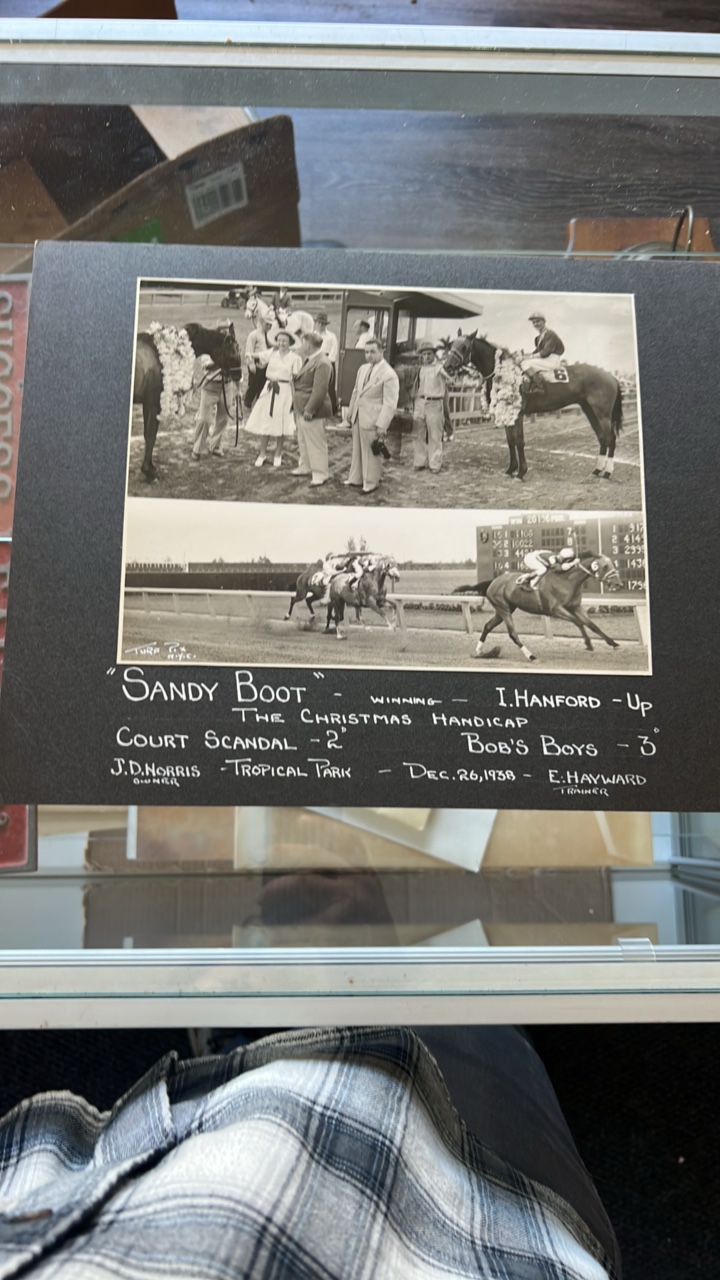 "SANDY BOOT" - WINNING - I. HANFORD - UP
THE CHRISTMAS HANDICAP
COURT SCANDAL - 2° BOB'S BOYS - 3°
J.D. NORRIS - TROPICAL PARK - DEC. 26, 1938 - E. HAYWARD
OWNER TRAINER
TURF PIX
N.Y.C.
6
SUCCESS